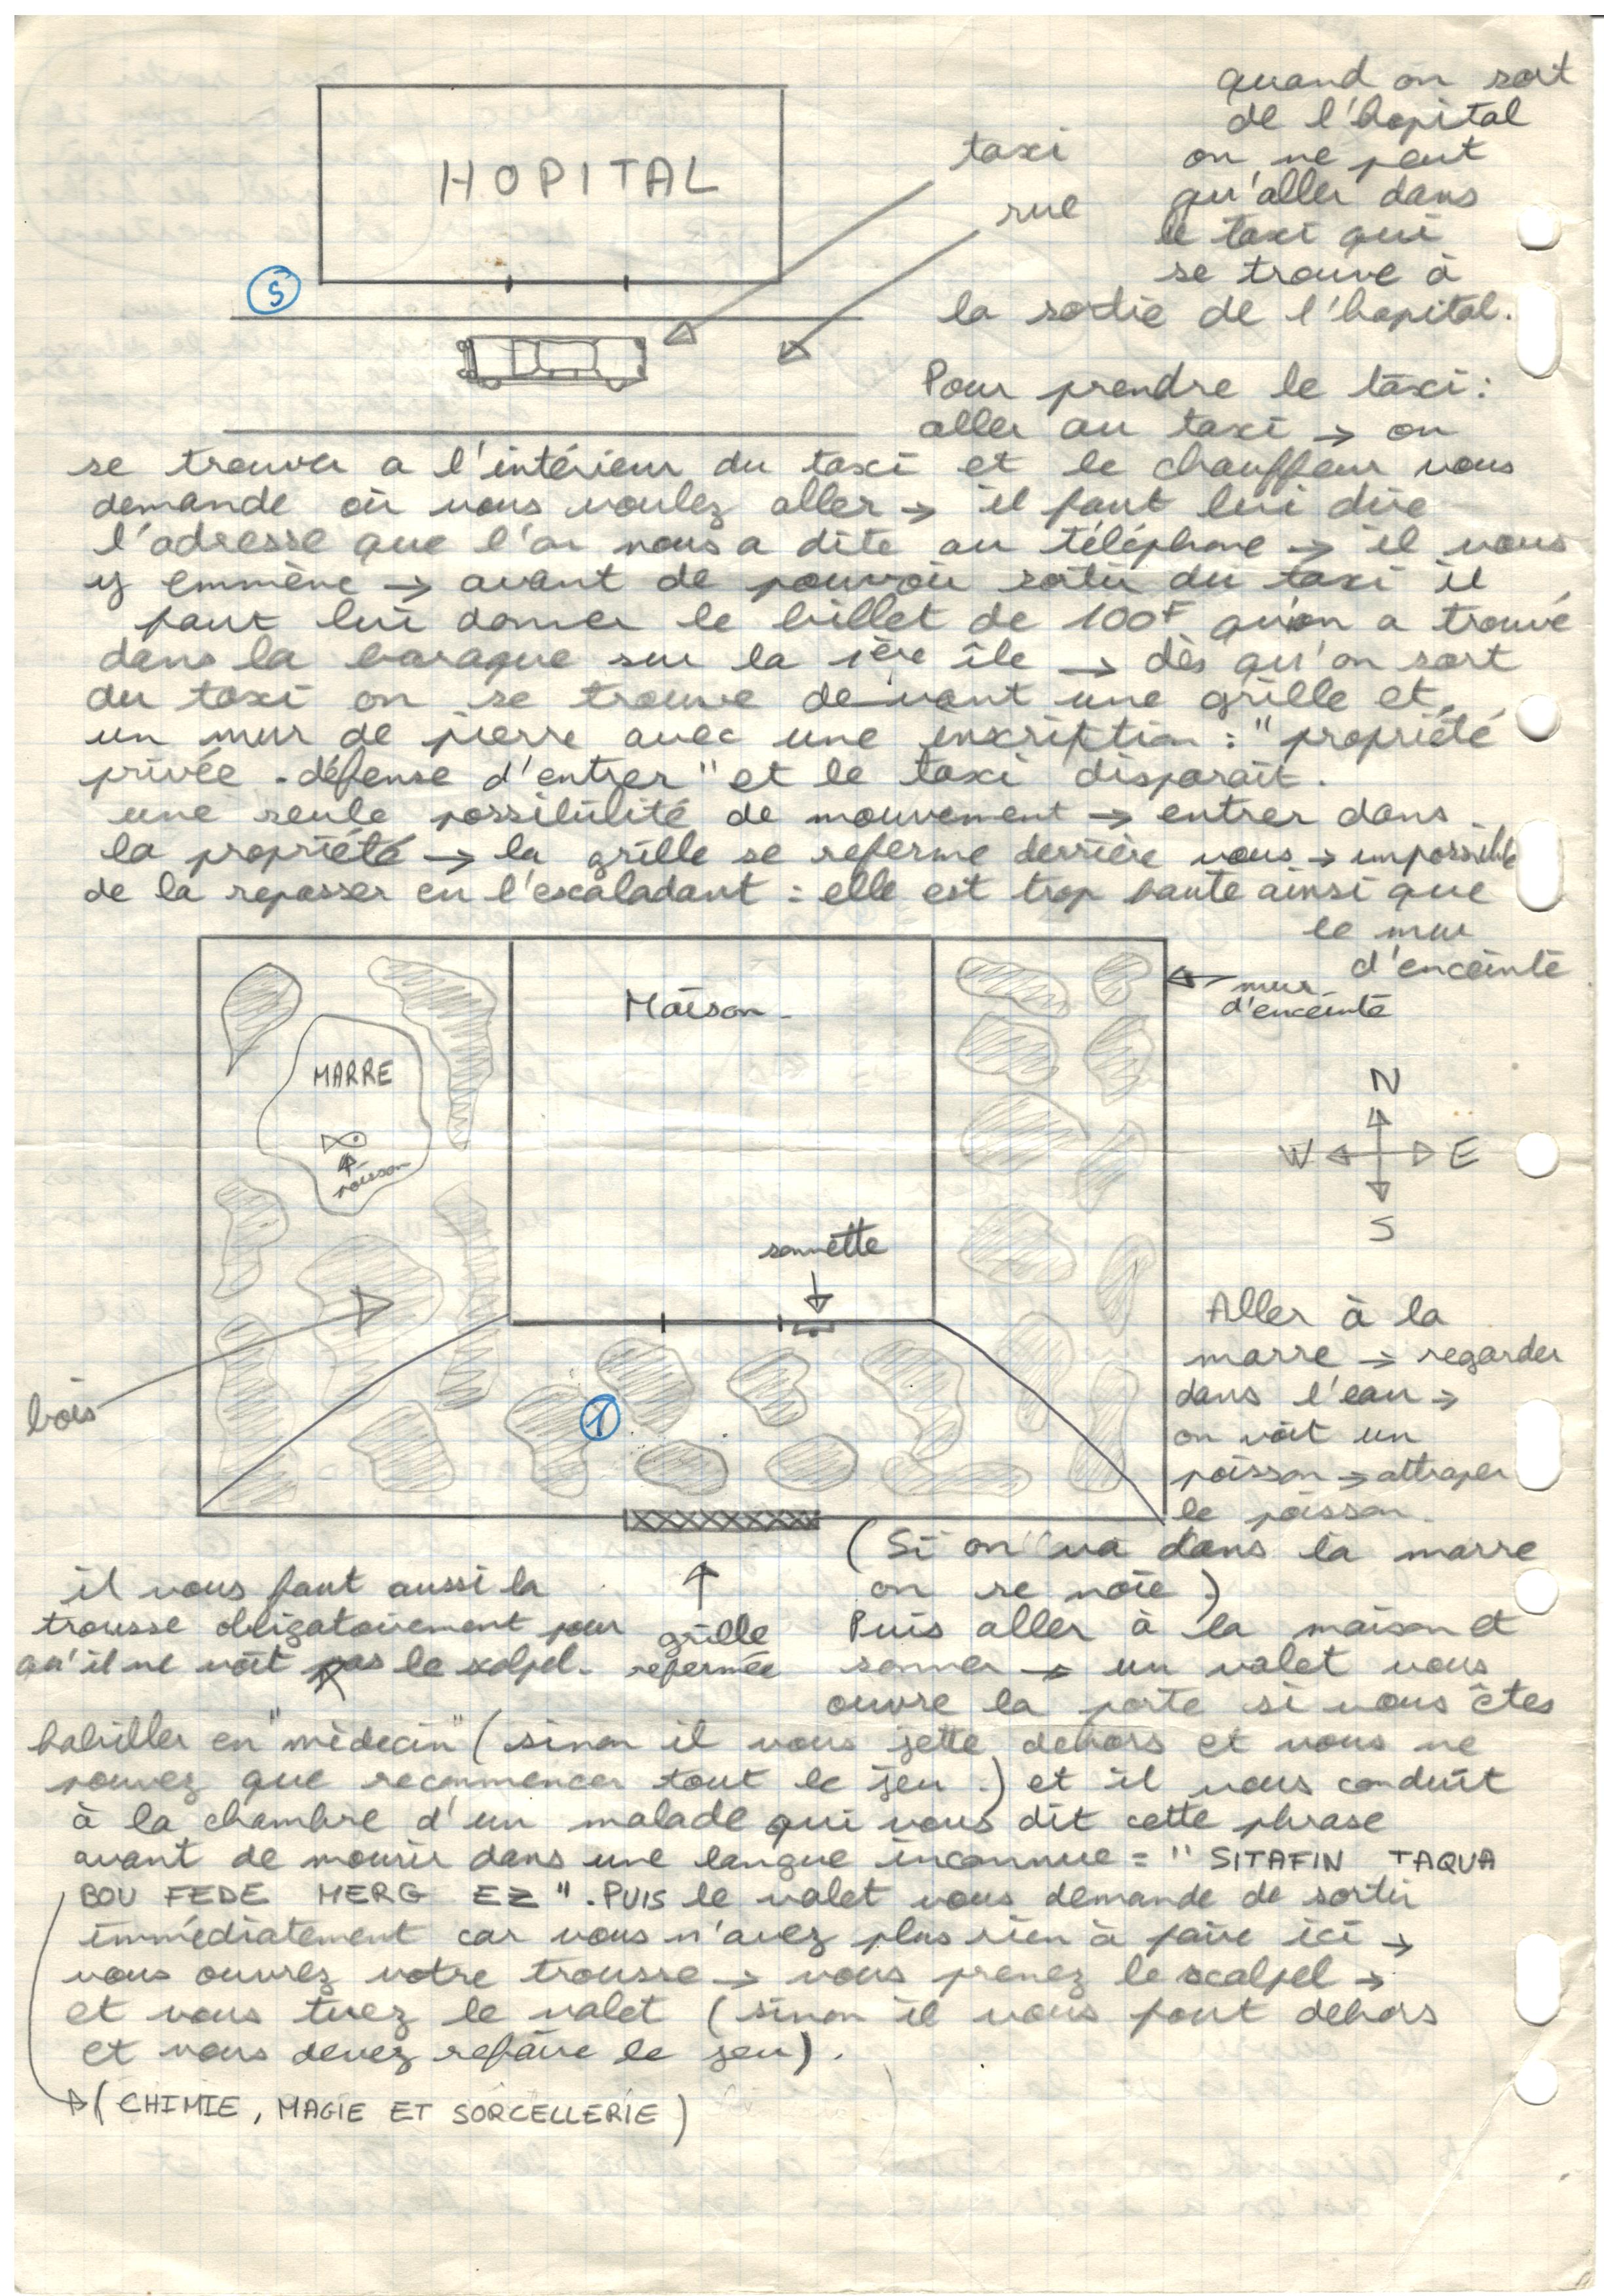 HOPITAL
5
taxi
rue
quand on sort
de l'hopital
on ne peut
qu'aller dans
le taxi qui
se trouve à
la sortie de l'hopital.
Pour prendre le taxi :
aller au taxi → on
se trouver a l'intérieur du taxi et le chauffeur vous
demande où vous voulez aller → il faut lui dire
l'adresse que l'on nous a dite au téléphone → il vous
y emmène → avant de pouvoir sortir du taxi il
faut lui donner le billet de 100F qu'on a trouvé
dans la baraque sur la 1ère île → dès qu'on sort
du taxi on se trouve devant une grille et
un mur de pierre avec une inscription : "propriété
privée - défense d'entrer" et le taxi disparait.
une seule possibilité de mouvement → entrer dans
la propriété → la grille se referme derrière vous → impossible
de la repasser en l'escaladant : elle est trop haute ainsi que
le mur
d'enceinte
mur
d'enceinte
Maison
MARRE
poisson
sonnette
N
W E
S
bois
1
Aller à la
marre → regarder
dans l'eau →
on voit un
poisson → attraper
le poisson.
(Si on va dans la marre
on se noie)
grille
refermée
il vous faut aussi la
trousse obligatoirement pour
qu'il ne voit pas le scalpel.
Puis aller à la maison et
sonner → un valet vous
ouvre la porte si vous êtes
habiller en "médecin" (sinon il vous jette dehors et vous ne
pouvez que recommencer tout le jeu.) et il vous conduit
à la chambre d'un malade qui vous dit cette phrase
avant de mourir dans une langue inconnue = "SITAFIN TAQUA
BOU FEDE MERG EZ". PUIS le valet vous demande de sortir
immédiatement car vous n'avez plus rien à faire ici →
vous ouvrez votre trousse → vous prenez le scalpel →
et vous tuez le valet (sinon il vous fout dehors
et vous devez refaire le jeu).
(CHIMIE, MAGIE ET SORCELLERIE)